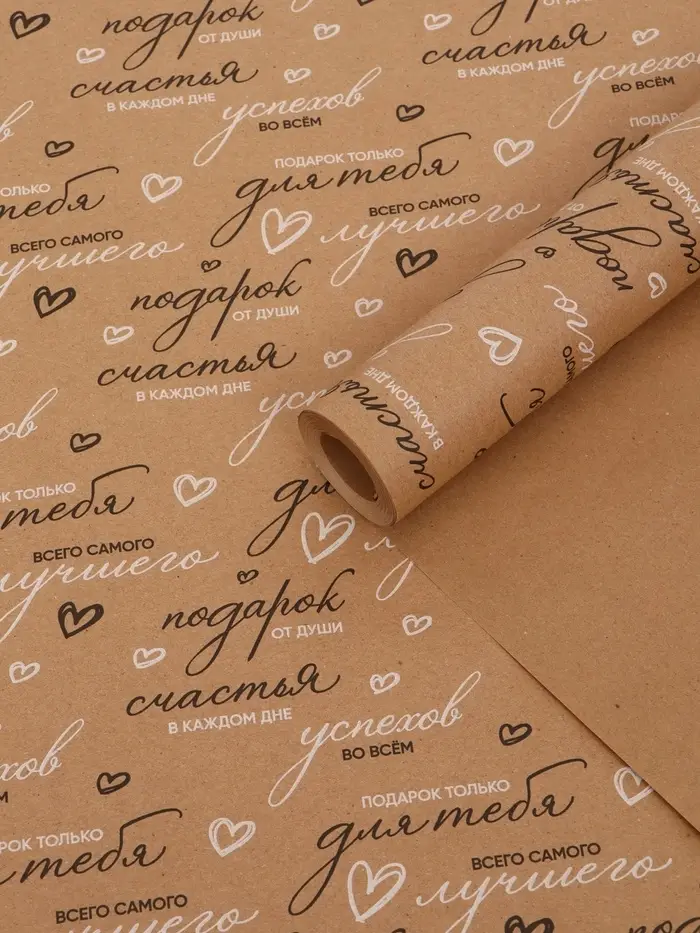 подарок
ОТ ДУШИ
счастья
В КАЖДОМ ДНЕ
успехов
ВО ВСЁМ
счастья
В КАЖДОМ ДНЕ
успехов
ВО ВСЁМ
ПОДАРОК ТОЛЬКО
для тебя
тебя
ВСЕГО САМОГО
лучшего
ВСЕГО САМОГО
лучшего
подарок
ОТ ДУШИ
счастья
В КАЖДОМ ДНЕ
В КАЖДОМ ДНЕ
ТОЛЬКО
тебя
ВСЕГО САМОГО
лучшего
подарок
ОТ ДУШИ
счастья
В КАЖДОМ ДНЕ
успехов
ВО ВСЁМ
ПОДАРОК ТОЛЬКО
для тебя
ТОЛЬКО
тебя
ВСЕГО САМОГО
лучшего
ВСЕГО САМОГО
лучшего